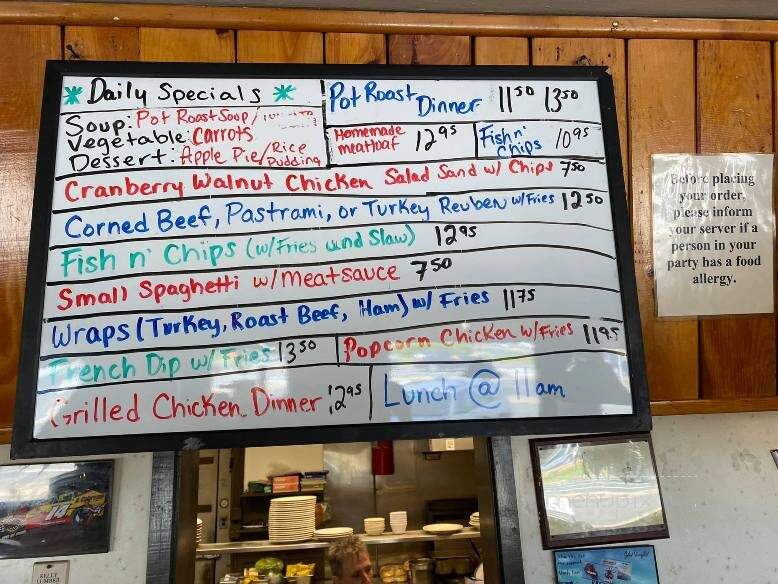 * Daily Specials *
Soup: Pot Roast Soup/
Vegetable: Carrots
Dessert: Apple Pie/Rice Pudding
Pot Roast Dinner 11 50 13 50
Homemade meatloaf 12 95
Fish n' Chips 10 95
Cranberry Walnut Chicken Salad Sand w/ Chips 7 50
Corned Beef, Pastrami, or Turkey Reuben w/Fries 12 50
Fish n' Chips (w/Fries and Slaw) 12 95
Small Spaghetti w/meatsauce 7 50
Wraps (Turkey, Roast Beef, Ham) w/ Fries 11 75
French Dip w/ Fries 13 50
Popcorn Chicken w/Fries 11 95
Grilled Chicken Dinner 12 95
Lunch @ 11am
Before placing
your order,
please inform
your server if a
person in your
party has a food
allergy.
14
KELLY
LUMBER